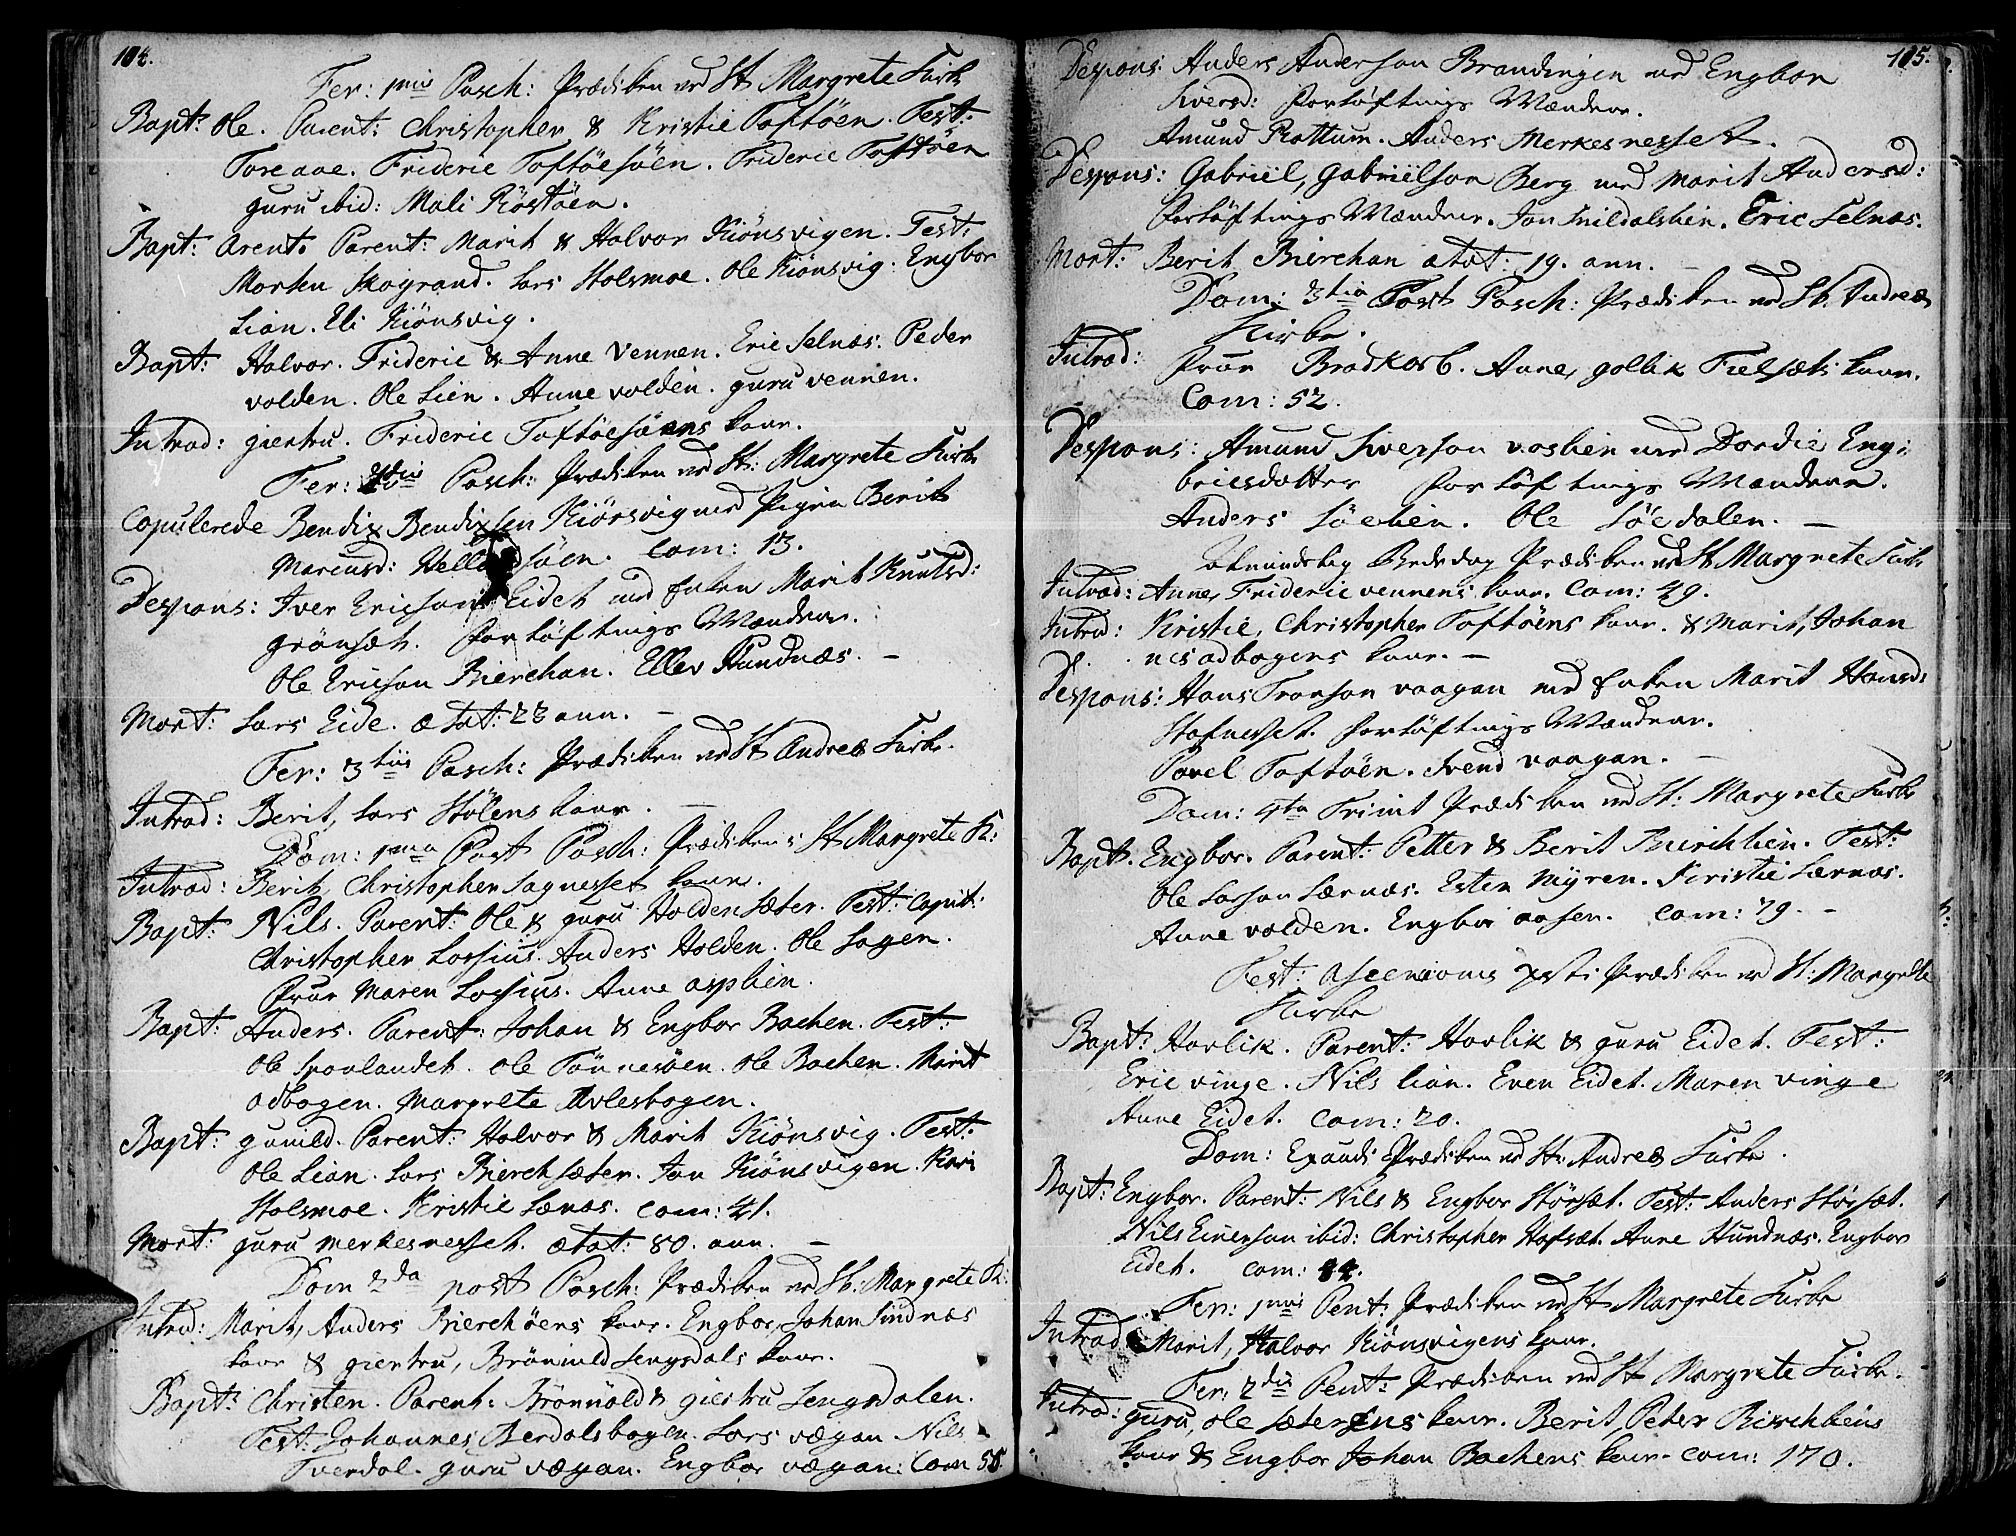 104.
Fer: 1mis Pasch: Prædiken ved St Margrete Kirke
Bapt: Ole. Parent: Christopher & Kristie Toftøen. Test:
Toreaae. Frideric Toftøesøen. Frideric Toftøen
guru ibid: Mali Røstøen.
Bapt: Arent. Parent: Marit & Halvor Kiønsvigen. Test:
Morten Skogrand. Lars Holsmoe. Ole Kiønsvig: Engbor
Lian. Eli Kiønsvig.
Bapt: Halvor. Frideric & Anne Vennen. Eric Selnæs. Peder
volden. Ole Lien. Anne volden. guru vennen.
Introd: giertru. Frideric Toftøesøens kone.
Fer: 2dis Pasch: Prædiken ved St: Margrete Kirke
Copulerede Bendix Bendixsen Kiønsvig med Pigen Berit
Mariusd: søen. Com: 13.
Despons: Iver Ericson Eidet med Enken Marit Knutsd:
grønsæt. Forløftnings Mændene.
Ole Ericson Bierchan. Ellev Hundnæs. —
Mort: Lars Eide. ætat: 23 ann. —
Fer: 3tiis Pasch: Prædiken ved St Andreæ Kirke.
Introd: Berit, Lars Stølens kone. —
Dom: 1ma Post Pasch: Prædiken i St Margrete K:
Introd: Berit, Christopher Sagnesset kone.
Bapt: Nils. Parent: Ole & guru Holden Sæter. Test: Capit:
Christopher Lossius. Anders Holden. Ole Sagen.
Frue Maren Lossius. Anne Asplien.
Bapt: Anders. Parent: Johan & Engbor Bachen. Test:
Ole Spoelandet. Ole Tønnesøen. Ole Bachen. Marit
odbogen. Margrete Avlesbogen.
Bapt: gunild. Parent: Halvor & Marit Kiønsvig. Test:
Ole Lian. Lars Bierchsæter. Jan Kiønsvigen. Kari
Holsmoe. Kristie Lænæs. Com: 41.
Mort: guru Merkesnesset. ætat: 80. ann. —
Dom 2da post Pasch: Prædiken ved St: Margrete K:
Introd: Marit, Anders Bierchøens kone. Engbor, Johan Sundnæs
kone & giertru, Brønnild Lengsdals kone.
Bapt: Christen. Parent: Brønnild & giertru Lengsdalen.
Test: Johannes Berdalsbogen. Lars vægan. Nils
Tverdal. guru vægan. Engbor vægan: Com 55
105.
Despons: Anders Anderson Brandingen med Engbor
Siversd: Forløftnings Mændene.
Amund Rottum. Anders Merkesnesset.
Despons: Gabriel, Gabrielson Berg med Marit Andersd:
Forløftnings Mændene. Jon Snildalslien. Eric Selnæs.
Mort: Berit Bierchan ætat: 19. ann. —
Dom: 3tia Post Pasch: Prædiken ved St. Andreæ
Kirke.
Introd: Frue Bradkorb. Anne, gollik Fielsæts kone.
Com: 52.
Despons: Amund Siverson voslien med Dordie Eng:
bricsdatter Forløftnings Mændene.
Anders Søelien. Ole Søedalen. —
Almindelig Bededag Prædiken ved St Margrete Kirke
Introd: Anne, Frideric vennens kone. Com: 49.
Introd: Kristie, Christopher Toftøens kone. & Marit, Johan
nes odbogens kone. —
Despons: Hans Tronson vaagan med Enken Marit Hansd:
Hofnesset. Forløftnings Mændene.
Povel Toftøen. Svend vaagan. —
Dom: 4ta Trinit Prædiken ved St: Margrete Kirke
Bapt. Engbor. Parent: Petter & Berit Birchlien. Test:
Ole Larson Lærnæs. Esten Myren. Kristie Lærnæs.
Anne volden. Engbor aasen. Com: 79. —
Fest: ascensionis xsti Prædiken ved St: Margrete
Kirke
Bapt: Havlik. Parent: Havlik & guru Eidet. Test:
Eric vinge. Nils lian. Even Eidet. Maren vinge
Anne Eidet. Com: 20.
Dom: Exaudi Prædiken ved St: Andreæ Kirke.
Bapt: Engbor. Parent: Nils & Engbor Størsæt. Test: Anders Størsæt.
Nils Einerson ibid: Christopher Hofsæt. Anne Hundnæs. Engbor
Eidet. Com: 84.
Fer: 1mis Pent: Prædiken ved St Margrete Kirke
Introd: Marit, Halvor Kiønsvigens kone.
Fer: 2dis Pent: Prædiken ved St Margrete Kirke.
Introd: guru, Ole Sæterens kone. Berit, Peter Birchliens
kone & Engbor Johan Bachens kone. Com: 170.